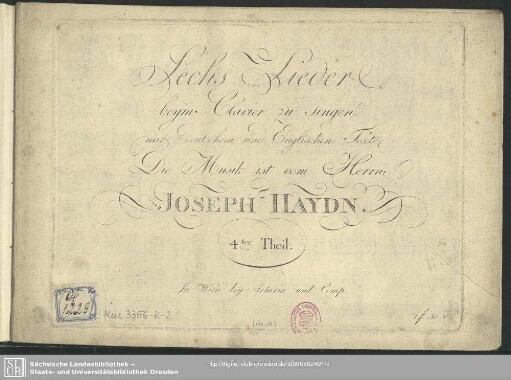 Sechs Lieder
beym Clavier zu singen
mit deutschem und Englischen Texte
Die Musik ist vom Herrn
JOSEPH HAYDN.
4ter Theil.
In Wien bey Artaria und Comp.
Mus. 3356-K-2
Sächsische Landesbibliothek –
Staats- und Universitätsbibliothek Dresden